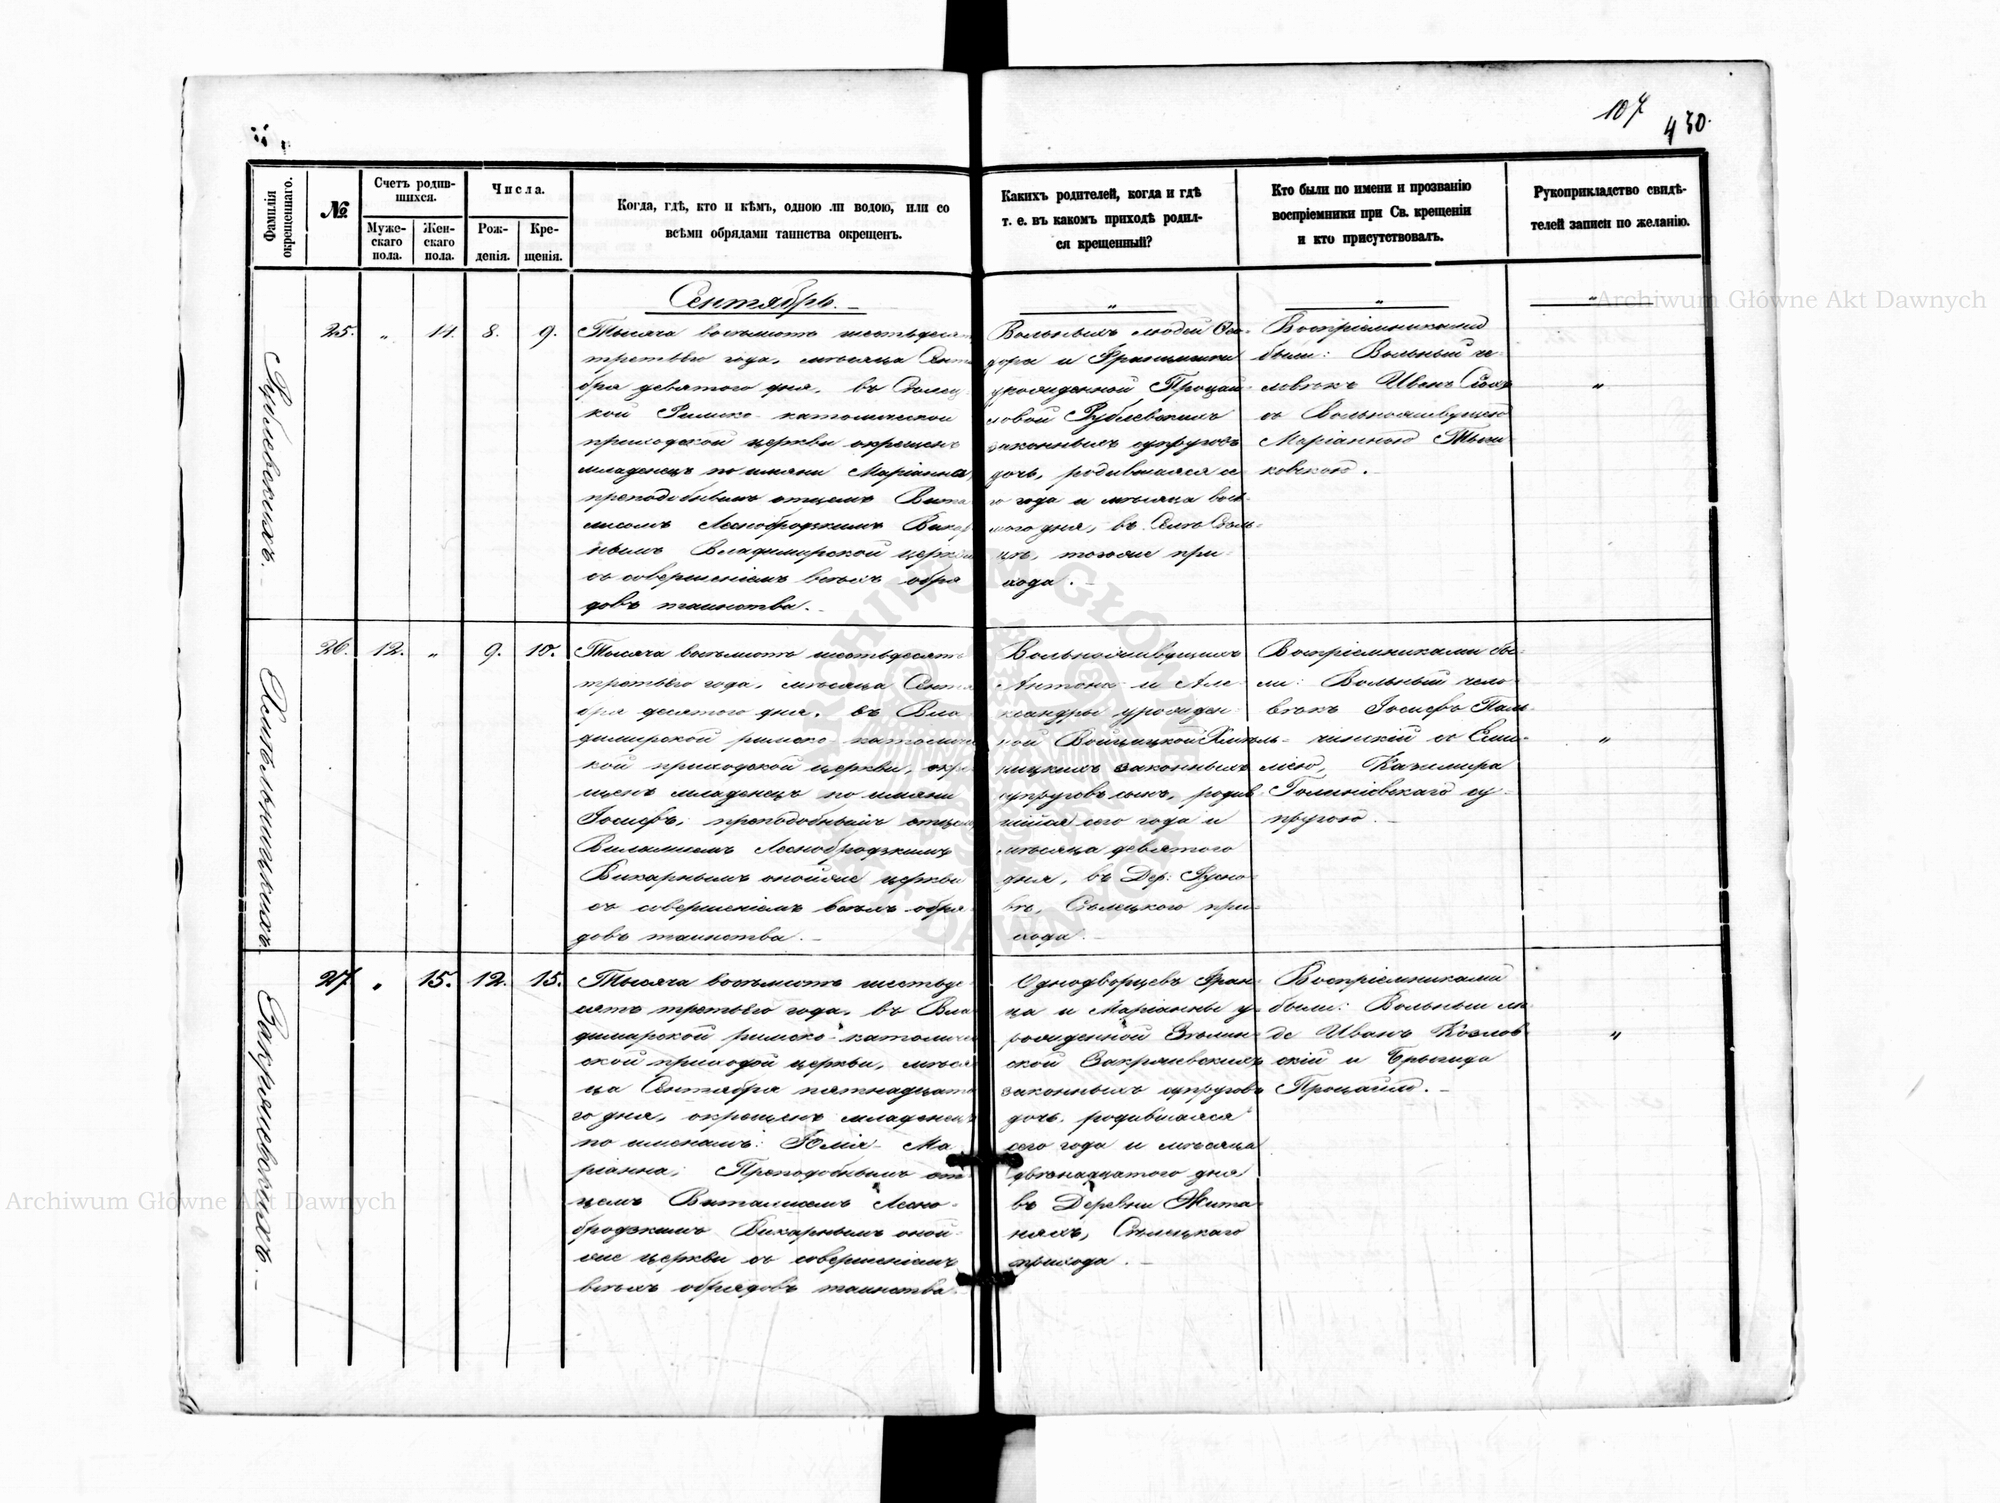 107
430.
Фамилія окрещеннаго.
№
Счетъ родив-
шихся.
Муже-
скаго
пола.
Жен-
скаго
пола.
Числа.
Рож-
денія.
Кре-
щенія.
Когда, гдѣ, кто и кѣмъ, одною ли водою, или со
всѣми обрядами таинства окрещенъ.
Каких родителей, когда и гдѣ
т. е. въ какомъ приходѣ родил-
ся крещенный?
Кто были по имени и прозванію
воспріемники при Св. крещеніи
и кто присутствовалъ.
Рукоприкладство свидѣ-
телей записи по желанію.
Сентябрь.
Рублевскихъ.
25. " 14. 8. 9.
Тысяча восемьсотъ шестьдесят
третьяго года, мѣсяца Сент
бря девятого дня, въ Сѣлец
кой Римско-католической
приходской церкви окрещенъ
младенецъ по имяни Маріанна,
преподобнымъ отцемъ Вита
лисомъ Леснобродзкимъ Викар
нымъ Владимирской церкви
съ совершеніемъ всѣхъ обря
довъ таинства.
Вольныхъ людей Ѳео-
дора и Францишки
урожденной Процай
ловой Рублевскихъ
законныхъ супруговъ
дочь, родившаяся се
го года и мѣсяца вось
мого дня, въ Селѣ Сѣль
цѣ, тогоже при-
хода.
Воспріемниками
были: Вольный че-
ловѣкъ Ивен
съ Вольноживущею
Маріанною
ковскою.
"
Хмѣльницкихъ.
26. 12. " 9. 10.
Тысяча восемьсотъ шестьдесятъ
третьяго года, мѣсяца Сентя
бря десятого дня, въ Вла-
димирской римско-католиче
кой приходской церкви, окре
щенъ младенецъ по имяни
Іосифъ, преподобнымъ отцемъ
Виталисомъ Леснобродзкимъ
Викарнымъ онойже церкви
съ совершеніемъ всѣхъ обря
довъ таинства.
Вольноживущихъ
Антона и Але-
ксандры урожден-
ной Войцицкой Хмѣль-
ницкихъ законныхъ
супруговъ сынъ, родив
шійся сего года и
мѣсяца девятого
дня, въ Дер: Русно-
вѣ, Сѣлецкого при-
хода.
Воспріемниками бы-
ли: Вольный чело-
вѣкъ Іосифъ Паль-
чинскій съ Еми-
ліею, Казимира
Голиніевскаго су-
пругою.
"
Закржевскихъ.
27. " 15. 12. 15.
Тысяча восемьсотъ шестьде
сятъ третьяго года, въ Вла
димирской римско-католиче
ской приходой церкви, мѣся
ца Сентября пятнадцато
го дня, окрещенъ младенецъ
по именамъ: Юлія-Ма-
ріанна, Преподобнымъ от
цемъ Виталисомъ Лесно-
бродзкимъ Викарнымъ оной
же церкви съ совершеніемъ
всѣхъ обрядовъ таинства.
Однодворцевъ Фран-
ца и Маріанны у-
рожденной Зѣлин-
ской Закржевскихъ
законныхъ супруговъ
дочь, родившаяся
сего года и мѣсяца
двѣнадцатого дня
въ Деревни Жита-
няхъ, Сѣлецкаго
прихода.
Воспріемниками
были: Вольныи лю-
де Иванъ Козлов-
скій и Брыгида
Процайло.
"
Archiwum Główne Akt Dawnych
Archiwum Główne Akt Dawnych
ARCHIWUM GŁÓWNE
AKT DAWNYCH